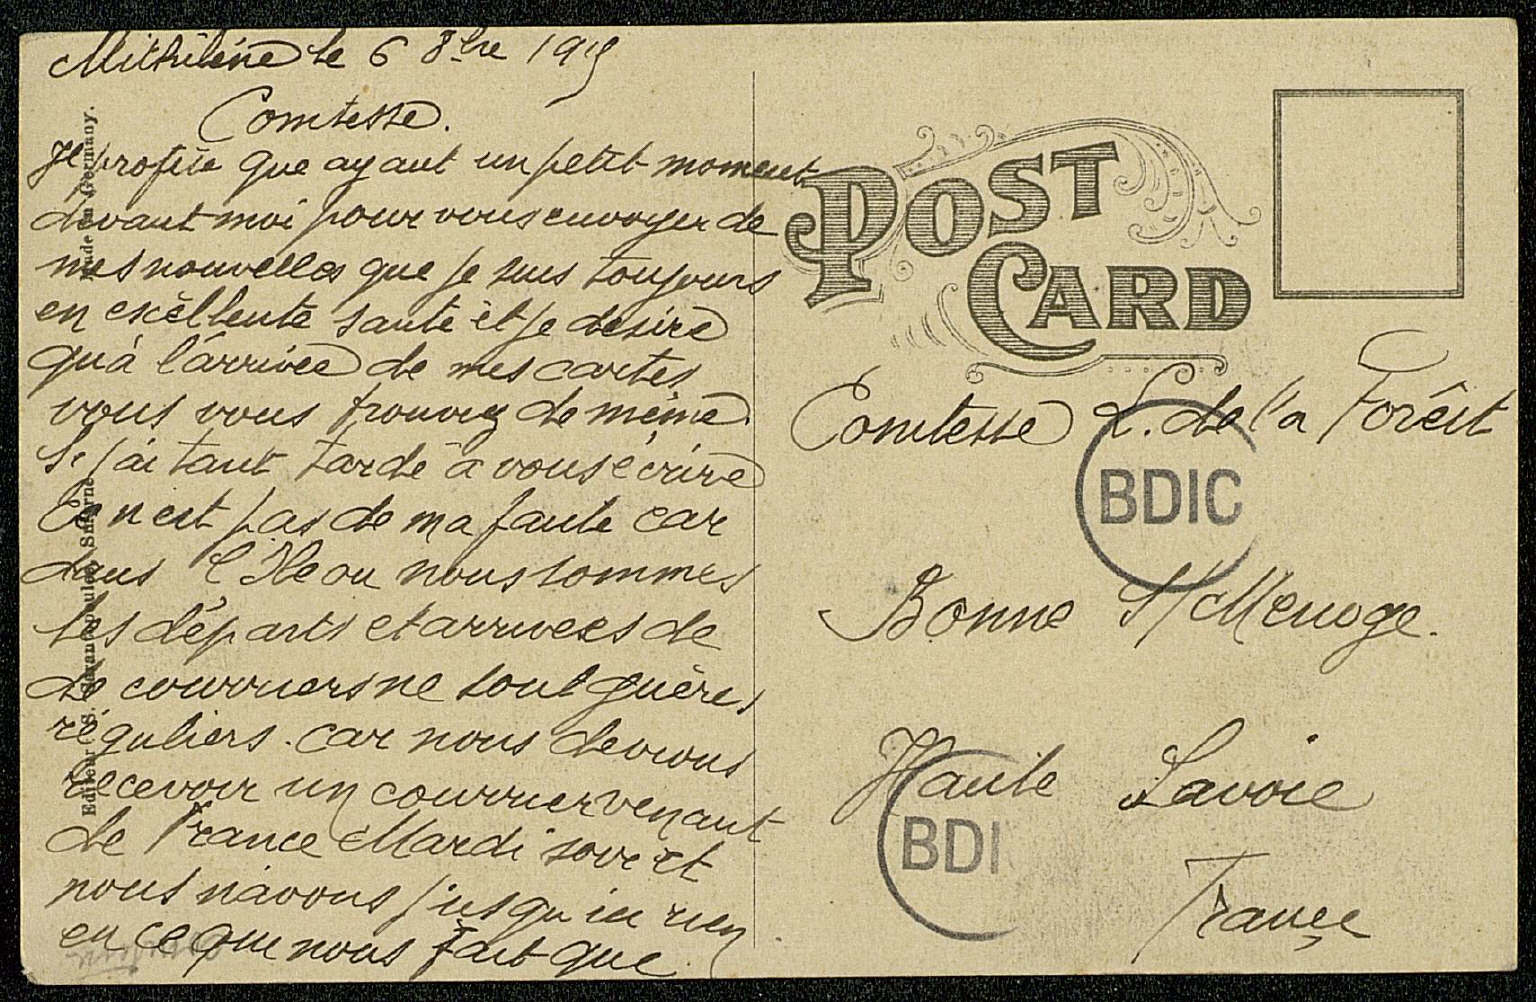 Mithilène le 6 8bre 1915
Comtesse.
Je profite que ayant un petit moment
devant moi pour vous envoyer de
mes nouvelles que je suis toujours
en excèllente santé èt je désire
qu'à l'arrivée de mes cartes
vous vous trouviez de même.
Si j'ai tant tardé à vous écrire
Ce n'est pas de ma faute car
dans l'Ile ou nous sommes
les départs et arrivées de
de courriers ne sont guères
réguliers. car nous devions
recevoir un courrier venant
de France Mardi soir et
nous n'avons jusqu'ici rien
en ce que nous fait que
POST
CARD
Comtesse L. de l'a Forêst
BDIC
Bonne S/ Menoge.
Haute Savoie
BDI
France
Editeur S. Smyrne
Made in Germany.